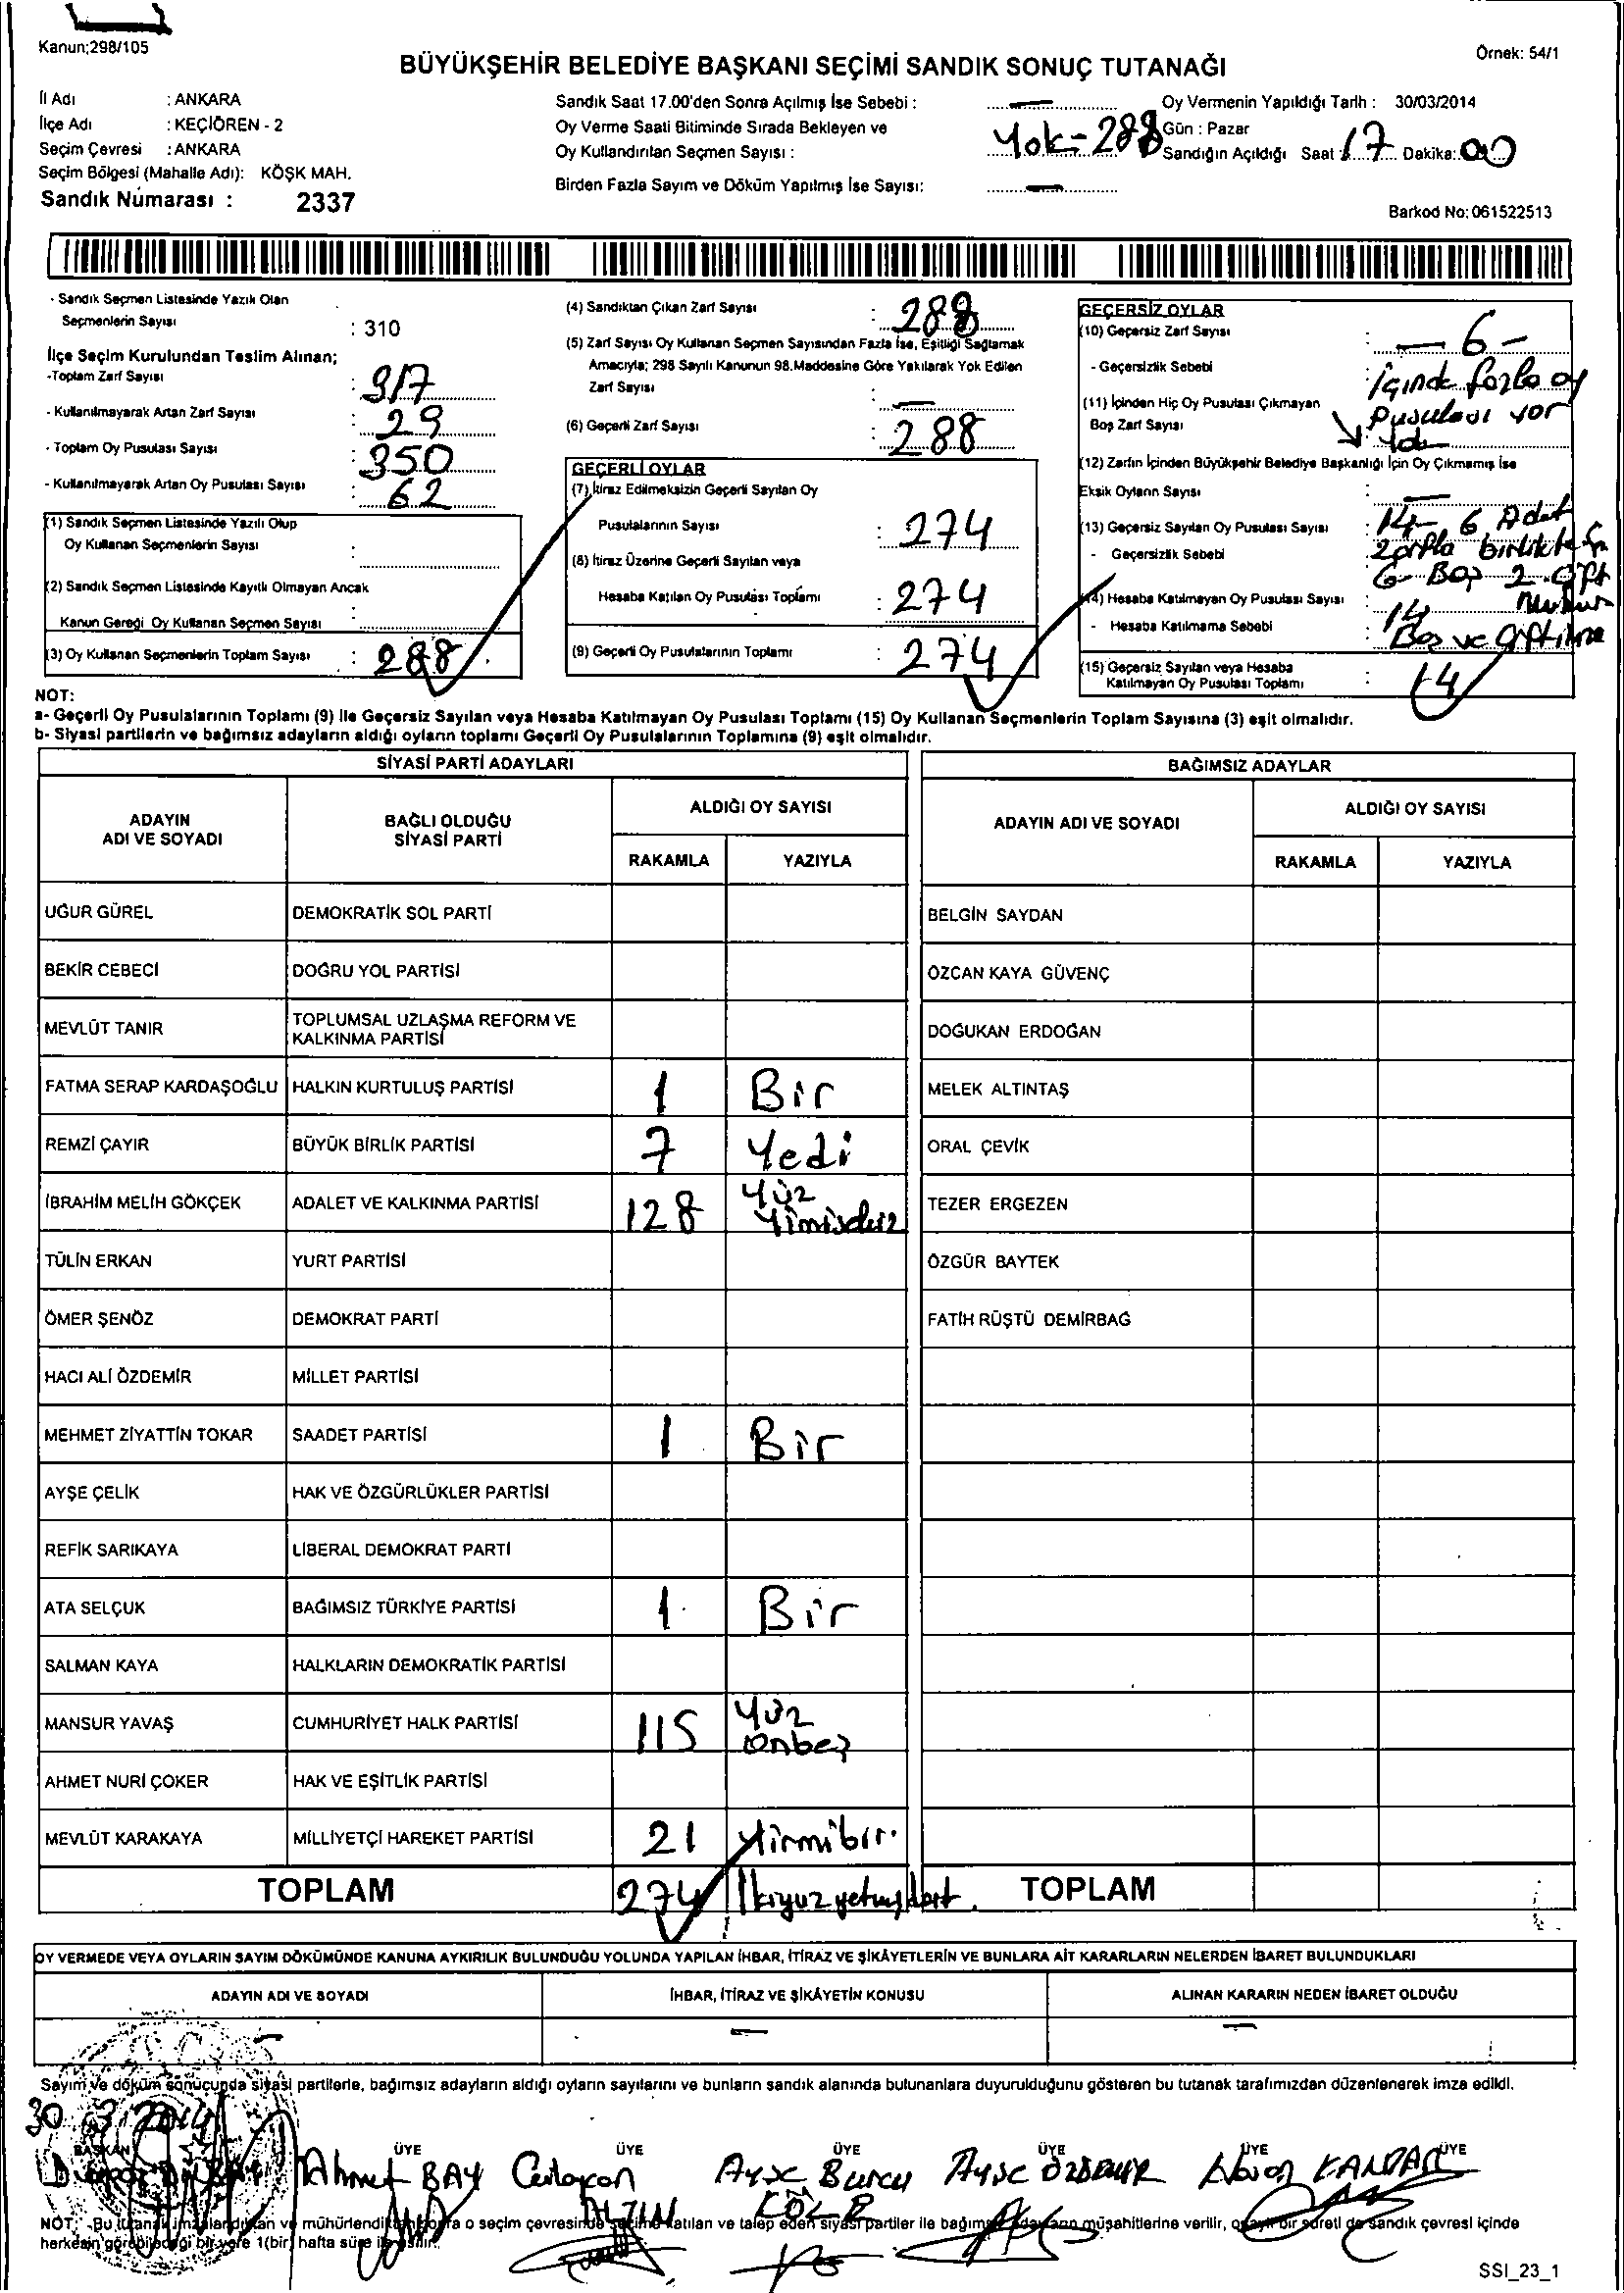 Kanun;298/105
Örnek: 54/1
BÜYÜKŞEHİR BELEDİYE BAŞKANI SEÇİMİ SANDIK SONUÇ TUTANAĞI
İl Adı : ANKARA
İlçe Adı : KEÇİÖREN - 2
Seçim Çevresi : ANKARA
Seçim Bölgesi (Mahalle Adı): KÖŞK MAH.
Sandık Numarası : 2337
Sandık Saat 17.00'den Sonra Açılmış İse Sebebi : —
Oy Verme Saati Bitiminde Sırada Bekleyen ve
Oy Kullandırılan Seçmen Sayısı : Yok-288
Birden Fazla Sayım ve Döküm Yapılmış İse Sayısı: —
Oy Vermenin Yapıldığı Tarih : 30/03/2014
Gün : Pazar
Sandığın Açıldığı Saat : 17 Dakika: 00
Barkod No: 061522513
- Sandık Seçmen Listesinde Yazılı Olan
Seçmenlerin Sayısı : 310
İlçe Seçim Kurulundan Teslim Alınan;
-Toplam Zarf Sayısı : 317
- Kullanılmayarak Artan Zarf Sayısı : 29
- Toplam Oy Pusulası Sayısı : 350
- Kullanılmayarak Artan Oy Pusulası Sayısı : 62
(1) Sandık Seçmen Listesinde Yazılı Olup
Oy Kullanan Seçmenlerin Sayısı :
(2) Sandık Seçmen Listesinde Kayıtlı Olmayan Ancak
Kanun Gereği Oy Kullanan Seçmen Sayısı :
(3) Oy Kullanan Seçmenlerin Toplam Sayısı : 288
(4) Sandıktan Çıkan Zarf Sayısı : 288
(5) Zarf Sayısı Oy Kullanan Seçmen Sayısından Fazla İse, Eşitliği Sağlamak
Amacıyla; 298 Sayılı Kanunun 98.Maddesine Göre Yakılarak Yok Edilen
Zarf Sayısı : —
(6) Geçerli Zarf Sayısı : 288
GEÇERLİ OYLAR
(7) İtiraz Edilmeksizin Geçerli Sayılan Oy
Pusulalarının Sayısı : 274
(8) İtiraz Üzerine Geçerli Sayılan veya
Hesaba Katılan Oy Pusulası Toplamı : 274
(9) Geçerli Oy Pusulalarının Toplamı : 274
GEÇERSİZ OYLAR
(10) Geçersiz Zarf Sayısı : — 6 -
- Geçersizlik Sebebi : içinde fazla oy
pusulası var
(11) İçinden Hiç Oy Pusulası Çıkmayan
Boş Zarf Sayısı : Yok
(12) Zarfın İçinden Büyükşehir Belediye Başkanlığı İçin Oy Çıkmamış İse
Eksik Oyların Sayısı : —
(13) Geçersiz Sayılan Oy Pusulası Sayısı : 14- 6 Adet
- Geçersizlik Sebebi : zarfla birlikte
6- Boş 2 çift
mühür
(14) Hesaba Katılmayan Oy Pusulası Sayısı : 14
- Hesaba Katılmama Sebebi : Boş ve
(15) Geçersiz Sayılan veya Hesaba
Katılmayan Oy Pusulası Toplamı : 14
NOT:
a- Geçerli Oy Pusulalarının Toplamı (9) ile Geçersiz Sayılan veya Hesaba Katılmayan Oy Pusulası Toplamı (15) Oy Kullanan Seçmenlerin Toplam Sayısına (3) eşit olmalıdır.
b- Siyasi partilerin ve bağımsız adayların aldığı oyların toplamı Geçerli Oy Pusulalarının Toplamına (9) eşit olmalıdır.
SİYASİ PARTİ ADAYLARI
ADAYIN ADI VE SOYADI
BAĞLI OLDUĞU SİYASİ PARTİ
ALDIĞI OY SAYISI
RAKAMLA YAZIYLA
UĞUR GÜREL DEMOKRATİK SOL PARTİ
BEKİR CEBECİ DOĞRU YOL PARTİSİ
MEVLÜT TANIR TOPLUMSAL UZLAŞMA REFORM VE
KALKINMA PARTİSİ
FATMA SERAP KARDAŞOĞLU HALKIN KURTULUŞ PARTİSİ 1 Bir
REMZİ ÇAYIR BÜYÜK BİRLİK PARTİSİ 7 Yedi
İBRAHİM MELİH GÖKÇEK ADALET VE KALKINMA PARTİSİ 128 Yüz
Yimisekiz
TÜLİN ERKAN YURT PARTİSİ
ÖMER ŞENÖZ DEMOKRAT PARTİ
HACI ALİ ÖZDEMİR MİLLET PARTİSİ
MEHMET ZİYATTİN TOKAR SAADET PARTİSİ 1 Bir
AYŞE ÇELİK HAK VE ÖZGÜRLÜKLER PARTİSİ
REFİK SARIKAYA LİBERAL DEMOKRAT PARTİ
ATA SELÇUK BAĞIMSIZ TÜRKİYE PARTİSİ 1 Bir
SALMAN KAYA HALKLARIN DEMOKRATİK PARTİSİ
MANSUR YAVAŞ CUMHURİYET HALK PARTİSİ 115 Yüz
Onbeş
AHMET NURİ ÇOKER HAK VE EŞİTLİK PARTİSİ
MEVLÜT KARAKAYA MİLLİYETÇİ HAREKET PARTİSİ 21 Yirmibir.
TOPLAM 274 İkiyüzyetmişdört.
BAĞIMSIZ ADAYLAR
ADAYIN ADI VE SOYADI
ALDIĞI OY SAYISI
RAKAMLA YAZIYLA
BELGİN SAYDAN
ÖZCAN KAYA GÜVENÇ
DOĞUKAN ERDOĞAN
MELEK ALTINTAŞ
ORAL ÇEVİK
TEZER ERGEZEN
ÖZGÜR BAYTEK
FATİH RÜŞTÜ DEMİRBAĞ
TOPLAM
OY VERMEDE VEYA OYLARIN SAYIM DÖKÜMÜNDE KANUNA AYKIRILIK BULUNDUĞU YOLUNDA YAPILAN İHBAR, İTİRAZ VE ŞİKÂYETLERİN VE BUNLARA AİT KARARLARIN NELERDEN İBARET BULUNDUKLARI
ADAYIN ADI VE SOYADI
İHBAR, İTİRAZ VE ŞİKÂYETİN KONUSU
ALINAN KARARIN NEDEN İBARET OLDUĞU
— — —
Sayım ve döküm sonucunda siyasi partilerle, bağımsız adayların aldığı oyların sayılarını ve bunların sandık alanında bulunanlara duyurulduğunu gösteren bu tutanak tarafımızdan düzenlenerek imza edildi.
30 3/2014
BAŞKAN ÜYE ÜYE ÜYE ÜYE ÜYE ÜYE
Ahmet BAY
Ayşe Burcu
Ayşe ÖZDEMİR
NOT: Bu tutanak imzalandıktan ve mühürlendikten sonra o seçim çevresinde seçime katılan ve talep eden siyasi partiler ile bağımsız adayların müşahitlerine verilir, onaylı bir sureti de sandık çevresi içinde
herkesin görebileceği bir yere 1(bir) hafta süre ile asılır.
SSI_23_1